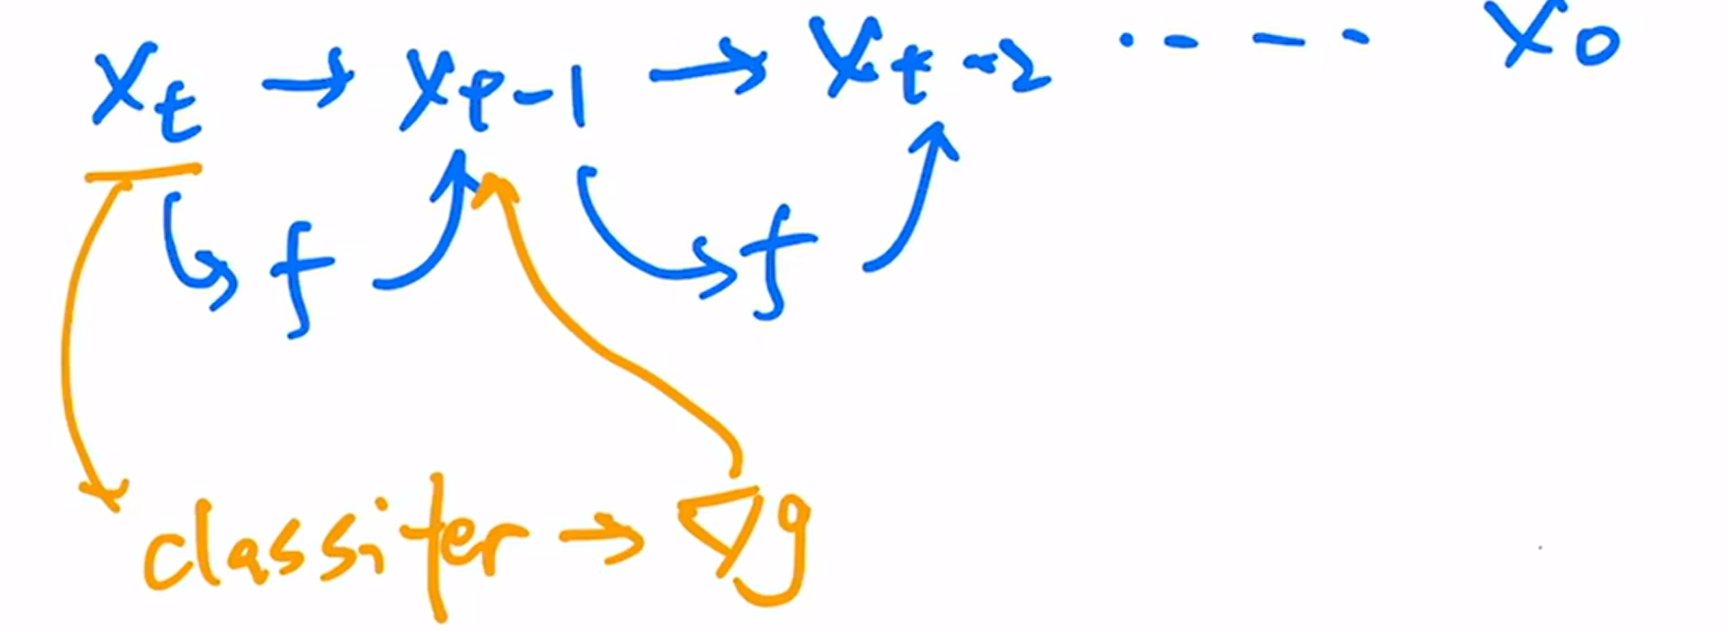 Xt → Xt-1 → Xt-2 ..... X0
f f
classifer → ∇g